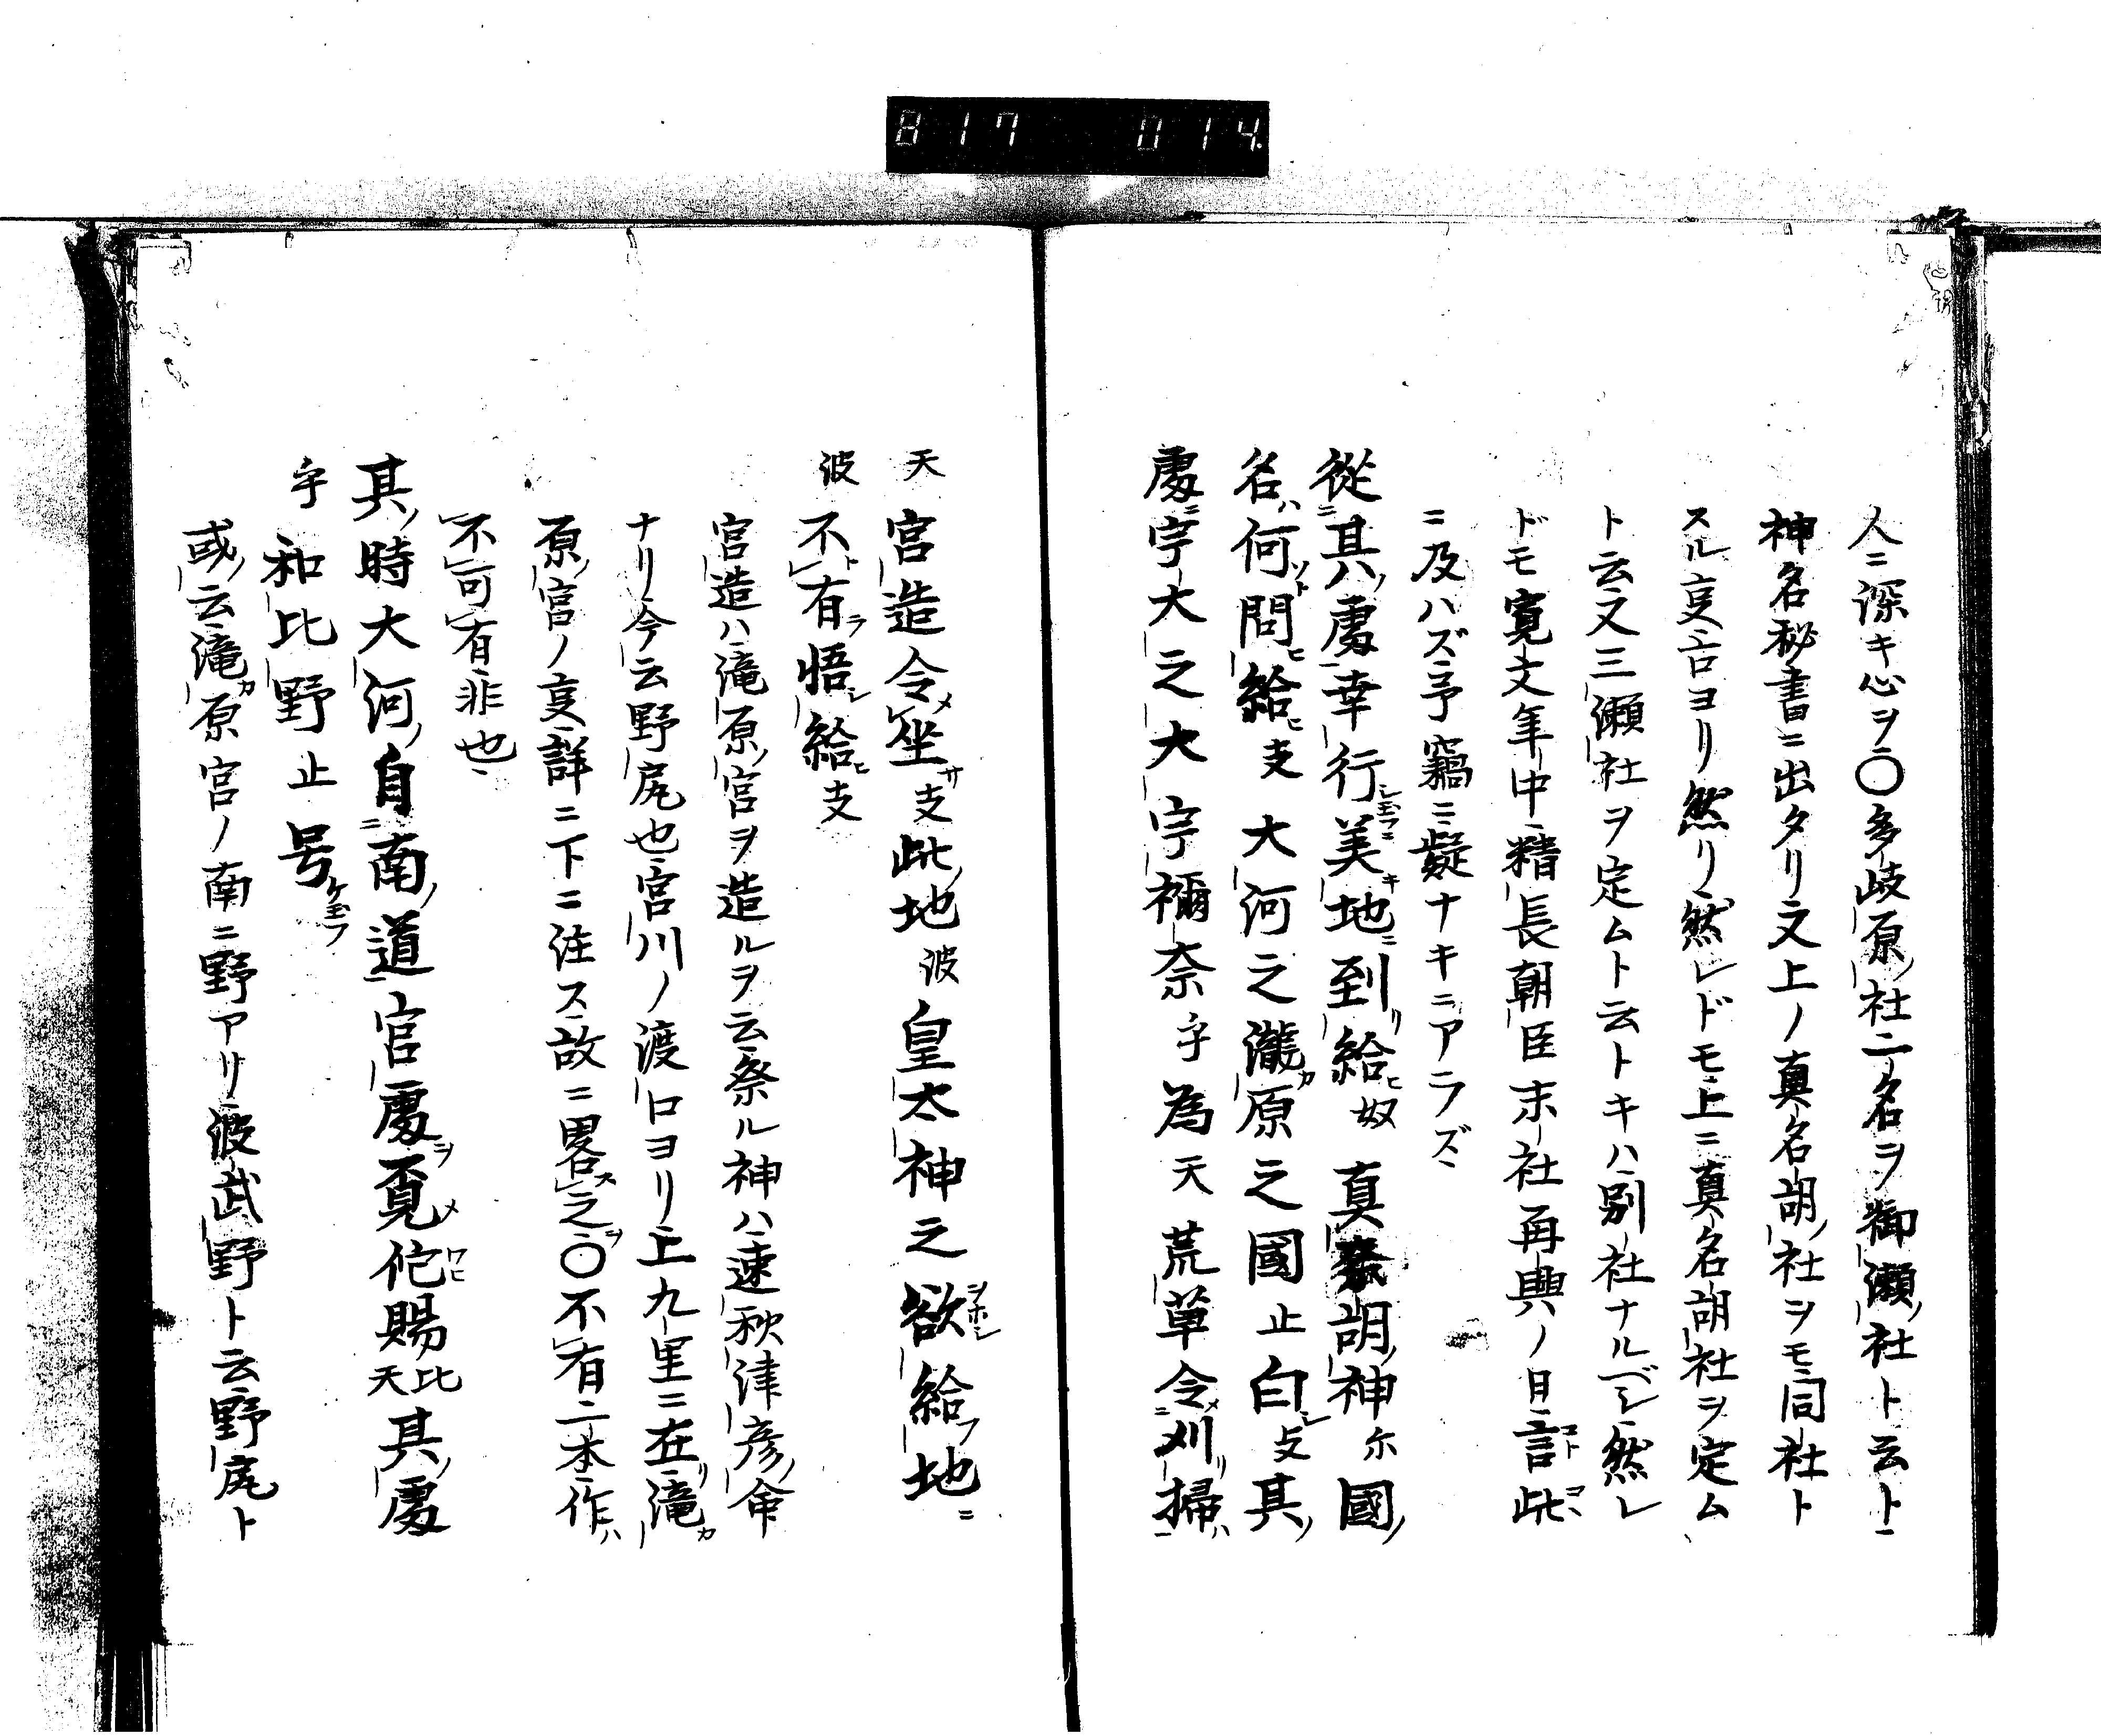 817 014
人ニ深キ心ヲ〇多岐原社二名ヲ御瀬社ト云ト
神名秘書ニ出タリ又上ノ真名胡社ヲモ同社ト
スル㕝古ヨリ然リ然レドモ上ニ真名胡社ヲ定ム
ト云又三瀬社ヲ定ムト云トキハ別社ナルベシ然レ
ドモ寛文年中精長朝臣末社再興ノ日言此
ニ及ハズ予竊ニ疑ナキニアラズ
從其處幸行美地到給奴真奈胡神尓國
名何問給支大河之瀧原之國止白支其
處宇大之大宇禰奈乎為天荒草令刈掃
天宮造令坐支此地波皇太神之欲給地
波不有悟給支
宮造ハ滝原宮ヲ造ルヲ云祭ル神ハ速秋津彦命
ナリ今云野尻也宮川ノ渡口ヨリ上九里ニ在滝
原宮ノ㕝詳ニ下ニ注ス故ニ畧之〇不有二本作
不可有非也
其時大河自南道宮處覓佗賜比天其處
乎和比野止号
或云滝原宮ノ南ニ野アリ波武野ト云野尻ト